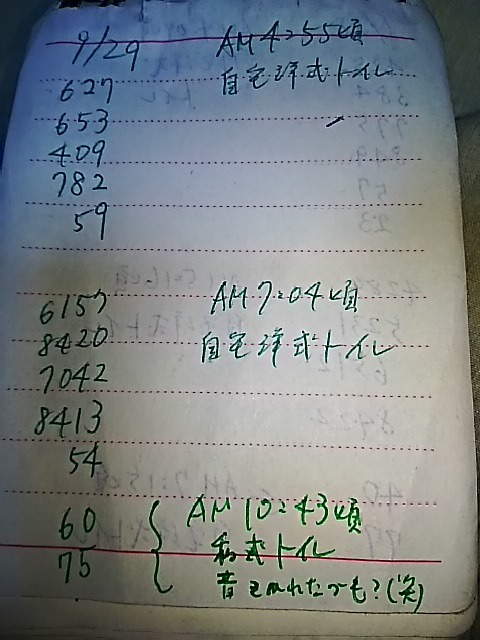 9/29 AM 4:55頃
627 自宅洋式トイレ
653
409
782
59
6157 AM 7:04頃
8420 自宅洋式トイレ
7042
8413
54
60 AM 10:43頃
和式トイレ
75
昔もれたっも?(笑)